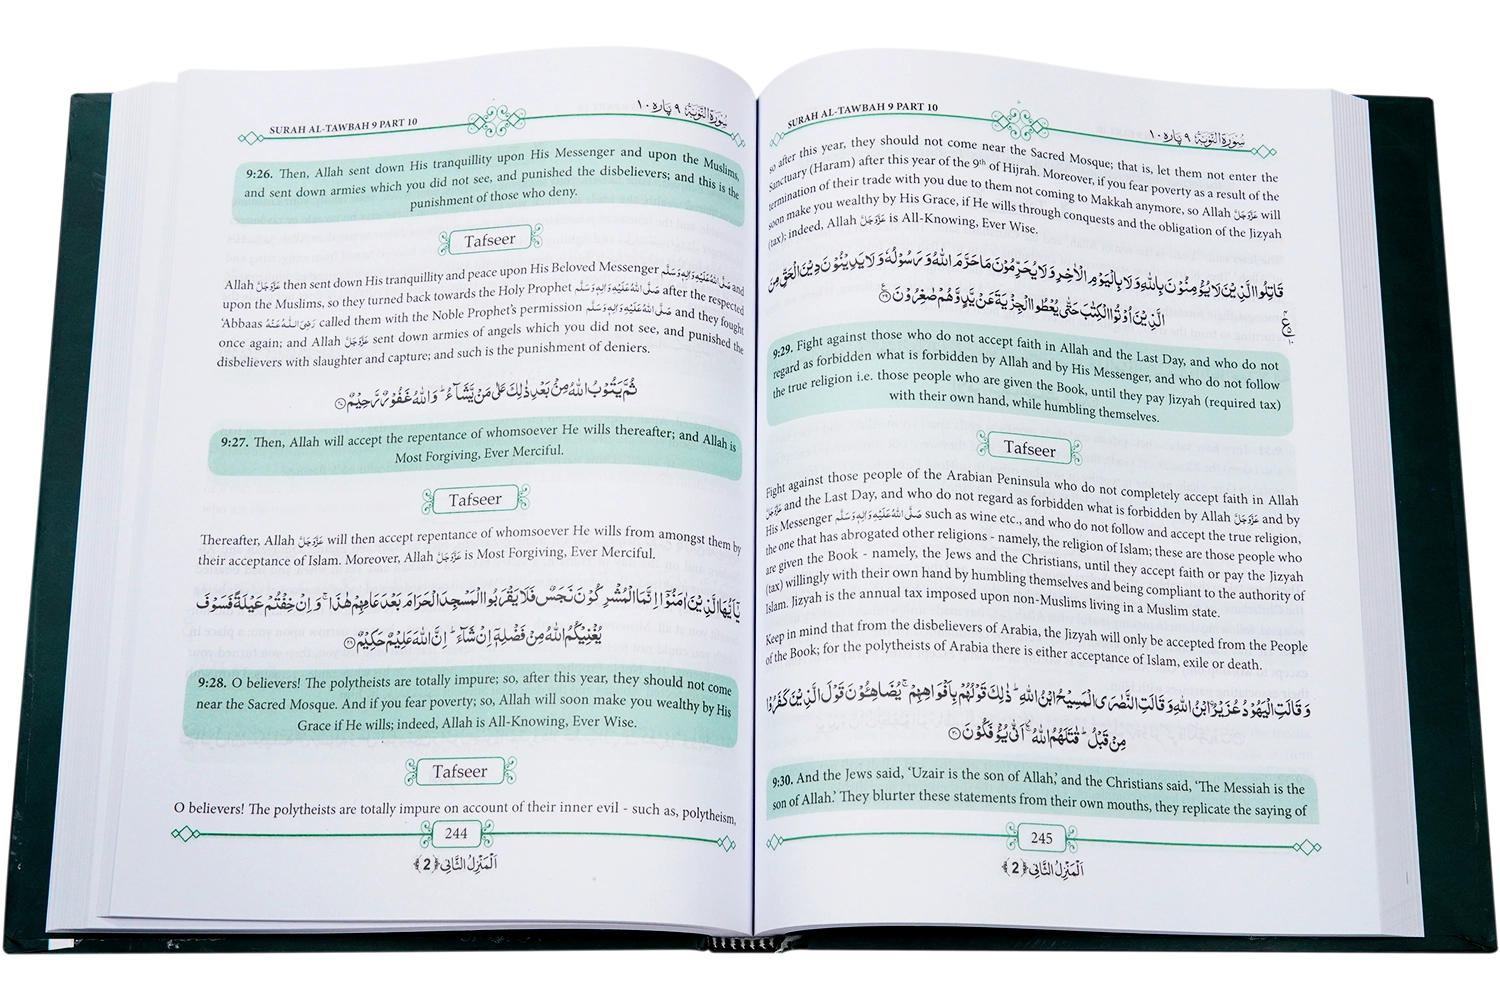 SURAH AL-TAWBAH 9 PART 10
سُوْرَةُ التَّوْبَة ٩ پَاره ١٠
9:26. Then, Allah sent down His tranquillity upon His Messenger and upon the Muslims,
and sent down armies which you did not see, and punished the disbelievers; and this is the
punishment of those who deny.
Tafseer
Allah عَزَّوَجَلَّ then sent down His tranquillity and peace upon His Beloved Messenger صَلَّى اللهُ عَلَيْهِ وَاٰلِهٖ وَسَلَّم and
upon the Muslims, so they turned back towards the Holy Prophet صَلَّى اللهُ عَلَيْهِ وَاٰلِهٖ وَسَلَّم after the respected
'Abbaas رَضِىَ اللهُ عَنْهُ called them with the Noble Prophet's permission صَلَّى اللهُ عَلَيْهِ وَاٰلِهٖ وَسَلَّم and they fought
once again; and Allah عَزَّوَجَلَّ sent down armies of angels which you did not see, and punished the
disbelievers with slaughter and capture; and such is the punishment of deniers.
ثُمَّ يَتُوْبُ اللهُ مِنْۢ بَعْدِ ذٰلِكَ عَلٰى مَنْ يَّشَآءُ ؕ وَاللهُ غَفُوْرٌ رَّحِيْمٌ ﴿۲۷﴾
9:27. Then, Allah will accept the repentance of whomsoever He wills thereafter; and Allah is
Most Forgiving, Ever Merciful.
Tafseer
Thereafter, Allah عَزَّوَجَلَّ will then accept repentance of whomsoever He wills from amongst them by
their acceptance of Islam. Moreover, Allah عَزَّوَجَلَّ is Most Forgiving, Ever Merciful.
يٰۤاَيُّهَا الَّذِيْنَ اٰمَنُوْۤا اِنَّمَا الْمُشْرِكُوْنَ نَجَسٌ فَلَا يَقْرَبُوا الْمَسْجِدَ الْحَرَامَ بَعْدَ عَامِهِمْ هٰذَا ۚ وَ اِنْ خِفْتُمْ عَيْلَةً فَسَوْفَ
يُغْنِيْكُمُ اللهُ مِنْ فَضْلِهٖۤ اِنْ شَآءَ ؕ اِنَّ اللهَ عَلِيْمٌ حَكِيْمٌ ﴿۲۸﴾
9:28. O believers! The polytheists are totally impure; so, after this year, they should not come
near the Sacred Mosque. And if you fear poverty; so, Allah will soon make you wealthy by His
Grace if He wills; indeed, Allah is All-Knowing, Ever Wise.
Tafseer
O believers! The polytheists are totally impure on account of their inner evil - such as, polytheism,
244
اَلْمَنْزِلُ الثَّانِى ﴿2﴾
SURAH AL-TAWBAH 9 PART 10
سُوْرَةُ التَّوْبَة ٩ پَاره ١٠
so after this year, they should not come near the Sacred Mosque; that is, let them not enter the
Sanctuary (Haram) after this year of the 9th of Hijrah. Moreover, if you fear poverty as a result of the
termination of their trade with you due to them not coming to Makkah anymore, so Allah عَزَّوَجَلَّ will
soon make you wealthy by His Grace, if He wills through conquests and the obligation of the Jizyah
(tax); indeed, Allah عَزَّوَجَلَّ is All-Knowing, Ever Wise.
قَاتِلُوا الَّذِيْنَ لَا يُؤْمِنُوْنَ بِاللهِ وَلَا بِالْيَوْمِ الْاٰخِرِ وَلَا يُحَرِّمُوْنَ مَا حَرَّمَ اللهُ وَ رَسُوْلُهٗ وَلَا يَدِيْنُوْنَ دِيْنَ الْحَقِّ مِنَ
الَّذِيْنَ اُوْتُوا الْكِتٰبَ حَتّٰى يُعْطُوا الْجِزْيَةَ عَنْ يَّدٍ وَّهُمْ صٰغِرُوْنَ ﴿۲۹﴾
9:29. Fight against those who do not accept faith in Allah and the Last Day, and who do not
regard as forbidden what is forbidden by Allah and by His Messenger, and who do not follow
the true religion i.e. those people who are given the Book, until they pay Jizyah (required tax)
with their own hand, while humbling themselves.
Tafseer
Fight against those people of the Arabian Peninsula who do not completely accept faith in Allah
عَزَّوَجَلَّ and the Last Day, and who do not regard as forbidden what is forbidden by Allah عَزَّوَجَلَّ and by
His Messenger صَلَّى اللهُ عَلَيْهِ وَاٰلِهٖ وَسَلَّم such as wine etc., and who do not follow and accept the true religion,
the one that has abrogated other religions - namely, the religion of Islam; these are those people who
are given the Book - namely, the Jews and the Christians, until they accept faith or pay the Jizyah
(tax) willingly with their own hand by humbling themselves and being compliant to the authority of
Islam. Jizyah is the annual tax imposed upon non-Muslims living in a Muslim state.
Keep in mind that from the disbelievers of Arabia, the Jizyah will only be accepted from the People
of the Book; for the polytheists of Arabia there is either acceptance of Islam, exile or death.
وَ قَالَتِ الْيَهُوْدُ عُزَيْرُ ابْنُ اللهِ وَ قَالَتِ النَّصٰرَى الْمَسِيْحُ ابْنُ اللهِ ؕ ذٰلِكَ قَوْلُهُمْ بِاَفْوَاهِهِمْ ۚ يُضَاهِـُٔوْنَ قَوْلَ الَّذِيْنَ كَفَرُوْا
مِنْ قَبْلُ ؕ قٰتَلَهُمُ اللهُ ۚ اَنّٰى يُؤْفَكُوْنَ ﴿۳۰﴾
9:30. And the Jews said, 'Uzair is the son of Allah,' and the Christians said, 'The Messiah is the
son of Allah.' They blurter these statements from their own mouths, they replicate the saying of
245
اَلْمَنْزِلُ الثَّانِى ﴿2﴾